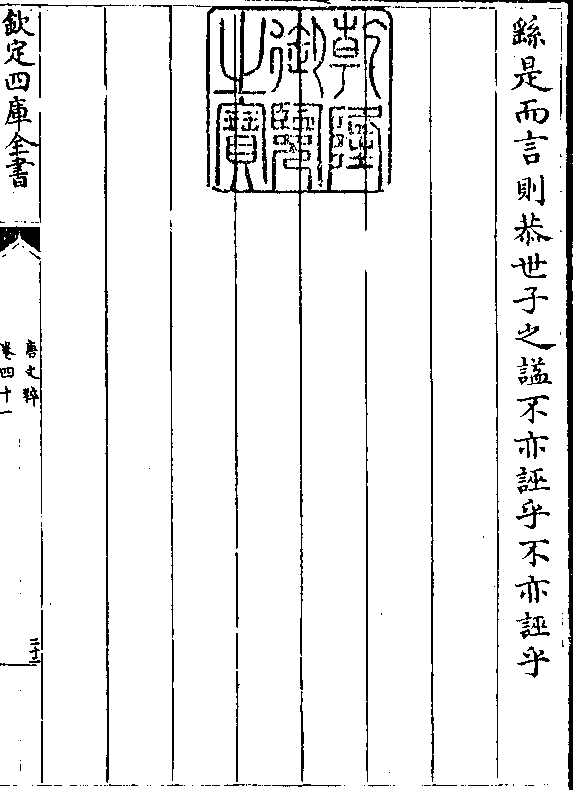 繇是而言則恭世子之諡不亦誣乎不亦誣乎
乾隆
御覽
之寶
欽定四庫全書
唐文粹
卷四十一
二十二